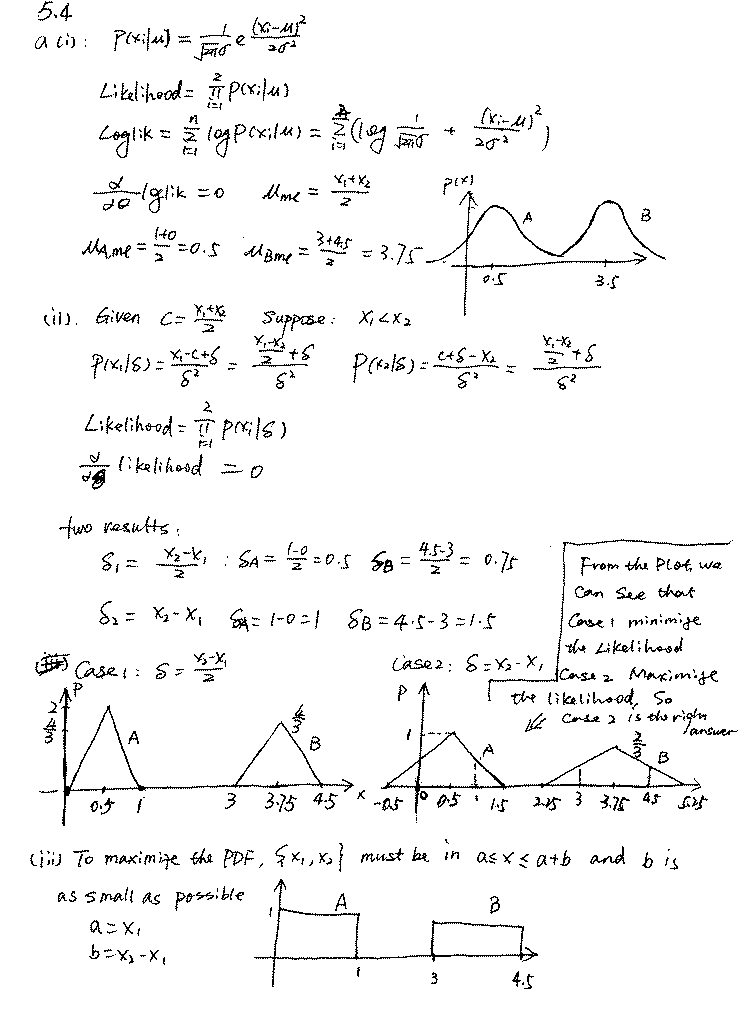 5.4
a (i): P(xi|μ) = 1/(√2π σ) e (xi-μ)²/2σ²
Likelihood = ∏_{i=1}^{2} P(xi|μ)
Loglik = Σ_{i=1}^{n} log P(xi|μ) = Σ_{i=1} (log 1/(√2π σ) + (xi-μ)²/2σ²)
d/dθ loglik = 0 μme = (x1+x2)/2
P(x)
A
B
μA,me = (1+0)/2 = 0.5 μBme = (3+4.5)/2 = 3.75
0.5 3.5
(ii). Given C = (x1+x2)/2 Suppose: x1 < x2
P(x1|δ) = (x1-c+δ)/δ² = ((x1-x2)/2 + δ)/δ² P(x2|δ) = (c+δ-x2)/δ² = ((x1-x2)/2 + δ)/δ²
Likelihood = ∏_{i=1}^{2} P(xi|δ)
likelihood = 0
two results:
δ1 = (x2-x1)/2 : δA = (1-0)/2 = 0.5 δB = (4.5-3)/2 = 0.75
δ2 = x2-x1 δA = 1-0 = 1 δB = 4.5-3 = 1.5
From the Plot, we
can see that
Case 1 minimize
the Likelihood
Case 2 Maximize
the likelihood, So
Case 2 is the right
answer
Case 1: δ = (x2-x1)/2
Case 2: δ = x2-x1
P
2
4/3
A
4/3
B
0.5 1 3 3.75 4.5 x
P
1
A
2/3
B
-0.5 0 0.5 1 1.5 2.25 3 3.75 4.5 5.25
(iii) To maximize the PDF, {x1,x2} must be in a≤x≤a+b and b is
as small as possible
a = x1
b = x2-x1
1
A
B
1 3 4.5